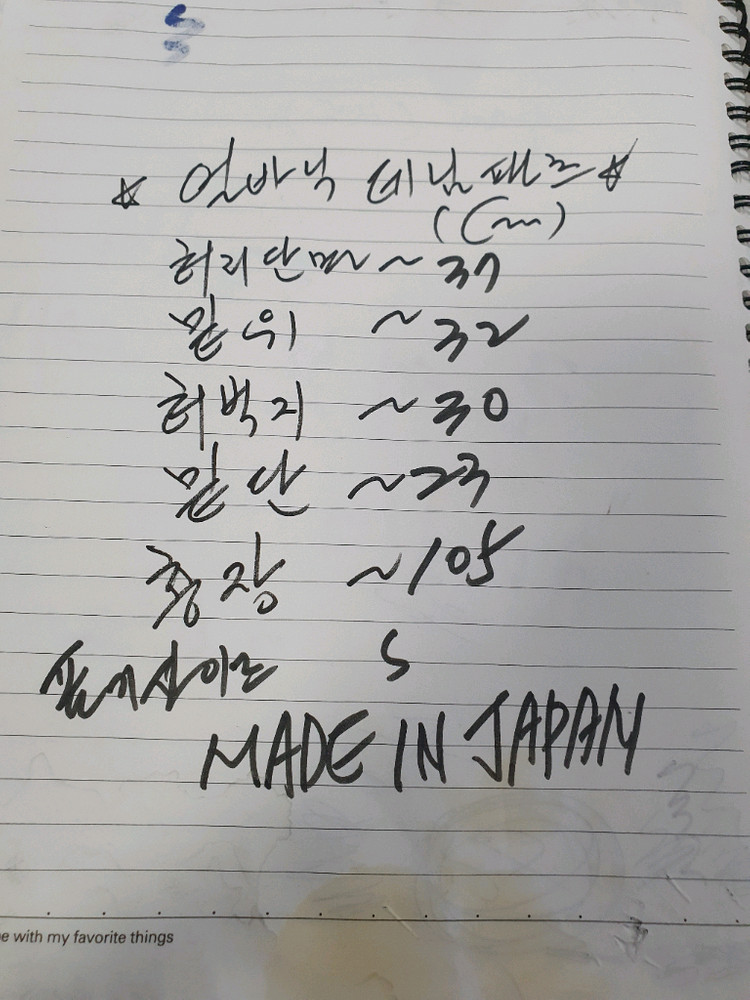 ☆ 얼바닉 데님 팬츠 ☆
(Cm)
허리단면 ~ 37
밑위 ~ 32
허벅지 ~ 30
밑단 ~ 23
총장 ~ 105
표기사이즈 S
MADE IN JAPAN
e with my favorite things